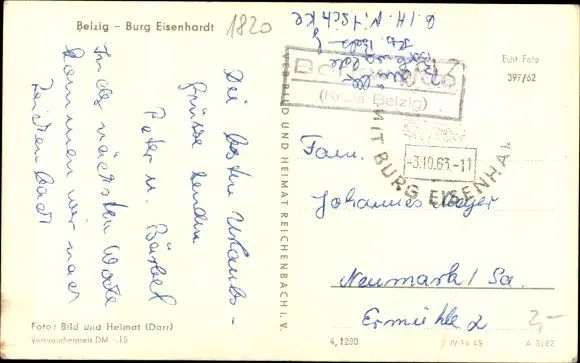 Belzig – Burg Eisenhardt
1820
Echt Foto
397/62
(Kreis Belzig)
MIT BURG EISENHAR
-3.10.63.-11
Die besten Urlaubs-
grüsse senden
Peter u. Bärbel
In der nächsten Woche
kommen wir nach
VERLAG BILD UND HEIMAT REICHENBACH I. V.
Fam.
Johannes Meyer
Neumark / Sa.
Ermühle 2
2,-
Foto: Bild und Heimat (Darr)
Verbraucherpreis DM -.15
4, 1280
IV-14-45
A 3/62